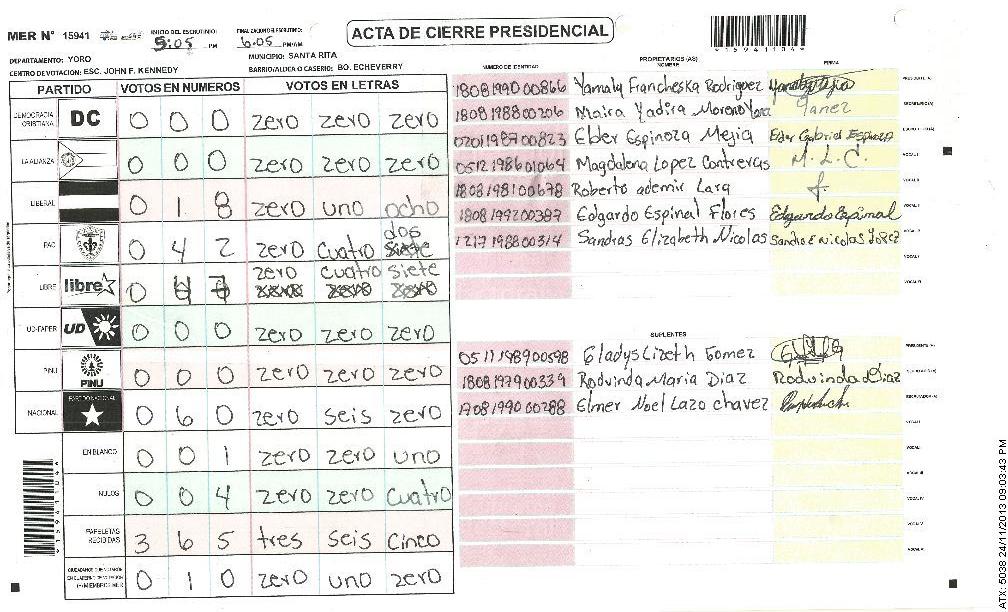 MER N° 15941
INICIO DEL ESCRUTINIO:
5:05 PM
FINALIZACION DEL ESCRUTINIO:
6:05 PM/AM
ACTA DE CIERRE PRESIDENCIAL
15941104
DEPARTAMENTO: YORO
MUNICIPIO: SANTA RITA
CENTRO DE VOTACION: ESC. JOHN F. KENNEDY
BARRIO/ALDEA O CASERIO: BO. ECHEVERRY
PARTIDO VOTOS EN NUMEROS VOTOS EN LETRAS
DEMOCRACIA CRISTIANA DC 0 0 0 zero zero zero
LA ALIANZA 0 0 0 zero zero zero
LIBERAL 0 1 8 zero uno ocho
PAC 0 4 2 zero cuatro dos siete
LIBRE libre 0 4 7 zero cuatro siete
UD-FAPER UD 0 0 0 zero zero zero
PINU PINU 0 0 0 zero zero zero
NACIONAL PARTIDO NACIONAL 0 6 0 zero seis zero
EN BLANCO 0 0 1 zero zero uno
NULOS 0 0 4 zero zero cuatro
PAPELETAS RECIBIDAS 3 6 5 tres seis cinco
CIUDADANOS QUE VOTARON
EN CUADERNO DE VOTACION
(+) MIEMBROS MER
0 1 0 zero uno zero
PROPIETARIOS (AS)
NUMERO DE IDENTIDAD NOMBRE FIRMA
1808199000866 Yamaly Francheska Rodriguez PRESIDENTE (A)
1808198800206 Maira Yadira Moreno Yanez SECRETARIO(A)
0201198700823 Elder Espinoza Mejia Eder Gabriel Espinoza ESCRUTADOR (A)
0512198601064 Magdalena Lopez Contreras M.L.C. VOCAL I
1808198100678 Roberto ademir Lara VOCAL II
1808199200387 Edgardo Espinal Flores Edgardo Espinal
1217198800314 Sandras Elizabeth Nicolas Sandra E Nicolas Lopez
SUPLENTES
0511198900598 Gladys Lizeth Gomez PRESIDENTE (A)
1808197900339 Rodvinda Maria Diaz Rodvinda Diaz SECRETARIO (A)
1708199000288 Elmer Noel Lazo chavez ESCRUTADOR (A)
ATX: 5038 24/11/2013 09:03:43 PM